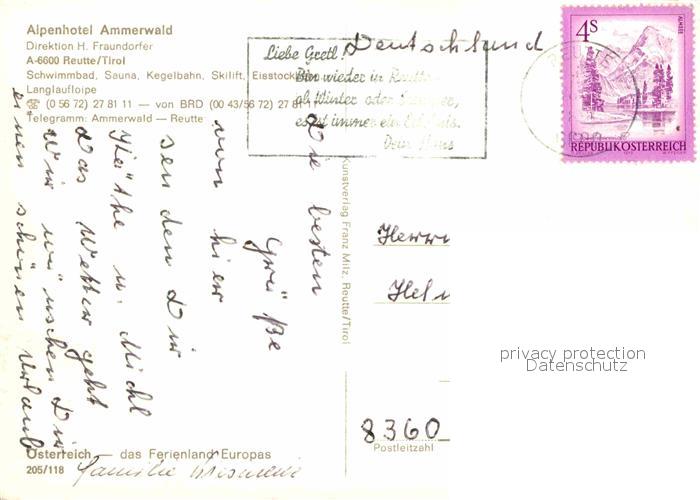 Alpenhotel Ammerwald
Direktion H. Fraundorfer
A-6600 Reutte/Tirol
Schwimmbad, Sauna, Kegelbahn, Skilift, Eisstock
Langlaufloipe
☎ (0 56 72) 27 81 11 — von BRD (00 43/56 72) 27 81
Telegramm: Ammerwald — Reutte
Liebe Gretl!
Bin wieder in Reutte
ob Winter oder Sommer,
es ist immer ein Erlebnis.
Dein Hans
Deutschland
4S
ALMSEE
REPUBLIK ÖSTERREICH
REUTTE
Die besten
Grüße
von hier
senden Dir
Käthe u. Michl
Das Wetter geht
Wir wünschen Dir
einen schönen Urlaub
Familie
Kunstverlag Franz Milz, Reutte/Tirol
Herrn
privacy protection
Datenschutz
8360
Postleitzahl
Österreich — das Ferienland Europas
205/118